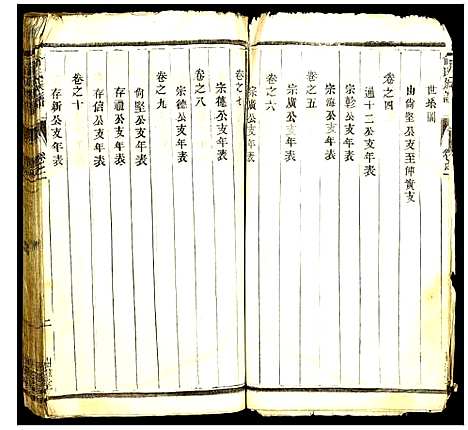 世系圖
由尙堅公支至傳賓支
卷之四
週十二公支年表
宗彰公支年表
宗海公支年表
卷之五
宗廣公支年表
卷之六
宗廣公支年表
卷之七
宗德公支年表
卷之八
宗德公支年表
卷之九
尙堅公支年表
存禮公支年表
存信公支年表
卷之十
存新公支年表